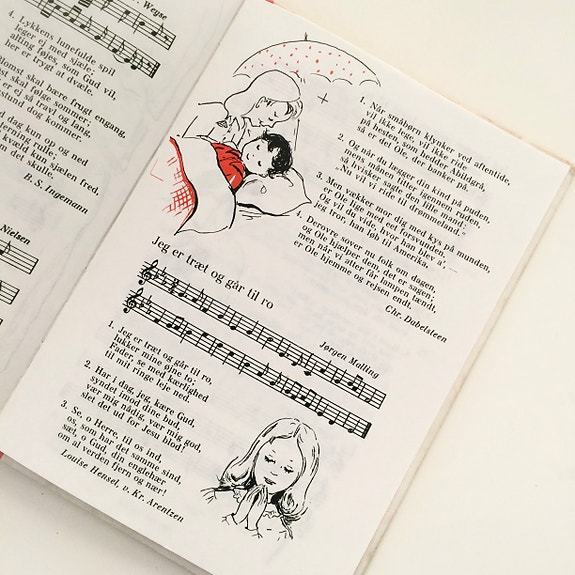 Weyse
4. Lykkens lunefulde spil
leger ej med sjæle:
alting føjes, som Gud vil,
her er trygt at dvæle.
skal bære frugt engang,
skal følge sommer;
er ej så travl og lang,
stund dog kommer.
dag kun op og ned
rude;
kvæld kun sjælen fred,
det skulle.
B. S. Ingemann
Nielsen
1. Når småbørn klynker ved aftentide,
vil ikke lege, vil ikke ride
på hesten, som hedder Abildgrå,
så er det Ole, der banker på
2. Og når du lægger din kind på puden,
mens månen lytter igennem ruden,
så hvisker sagte den lille mand:
„Nu vil vi ride til drømmeland."
3. Man vækker mor dig med kys på munden,
er Ole Ige med eet forsvunden.
Og vil du vide, hvor han blev a', —
jeg tror, han løb til Amerika.
4. Derovre sover nu folk om dagen,
og Ole hjælper dem, det er sagen;
men når vi atter får lampen tændt,
er Ole hjemme og rejsen endt.
Chr. Dabelsteen
Jeg er træt og går til ro
Jørgen Malling
1. Jeg er træt og går til ro,
lukker mine øjne to;
Fader, se med kærlighed
til mit ringe leje ned.
2. Har i dag, jeg, kære Gud,
syndet imod dine bud,
vær mig nådig, vær mig god,
slet det ud for Jesu blod!
3. Se, o Herre, til os ind,
os, som har det samme sind,
sæt, o Gud, din englehær
om al verden fjern og nær!
Louise Hensel, v. Kr. Arentzen